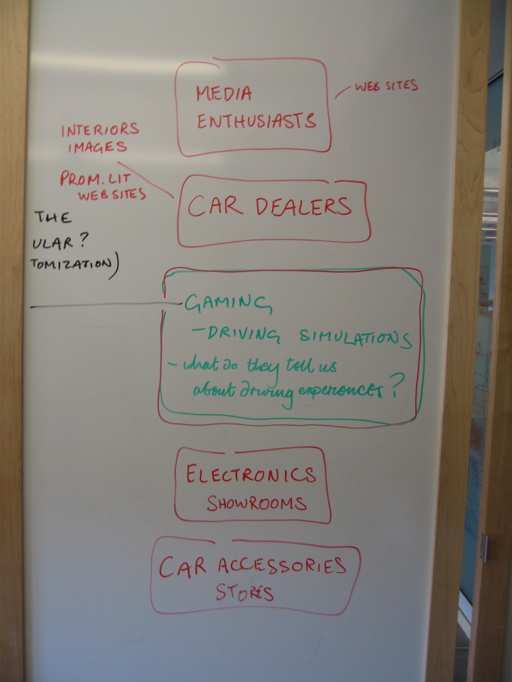 MEDIA
ENTHUSIASTS
WEB SITES
INTERIORS
IMAGES
PROM. LIT
WEBSITES
CAR DEALERS
THE
ULAR?
TOMIZATION)
GAMING
- DRIVING SIMULATIONS
- what do they tell us
about driving experiences?
ELECTRONICS
SHOWROOMS
CAR ACCESSORIES
STORES